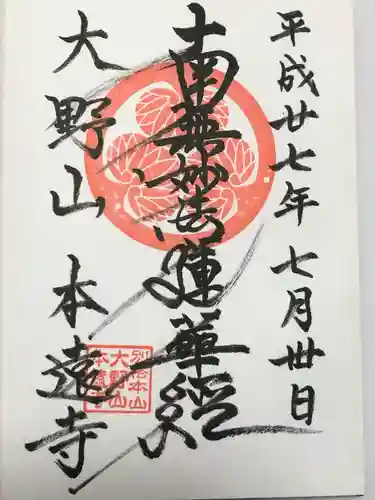 平成廿七年七月卅日
南無妙法蓮華経
大野山本遠寺
別格本山
大野山
本遠寺